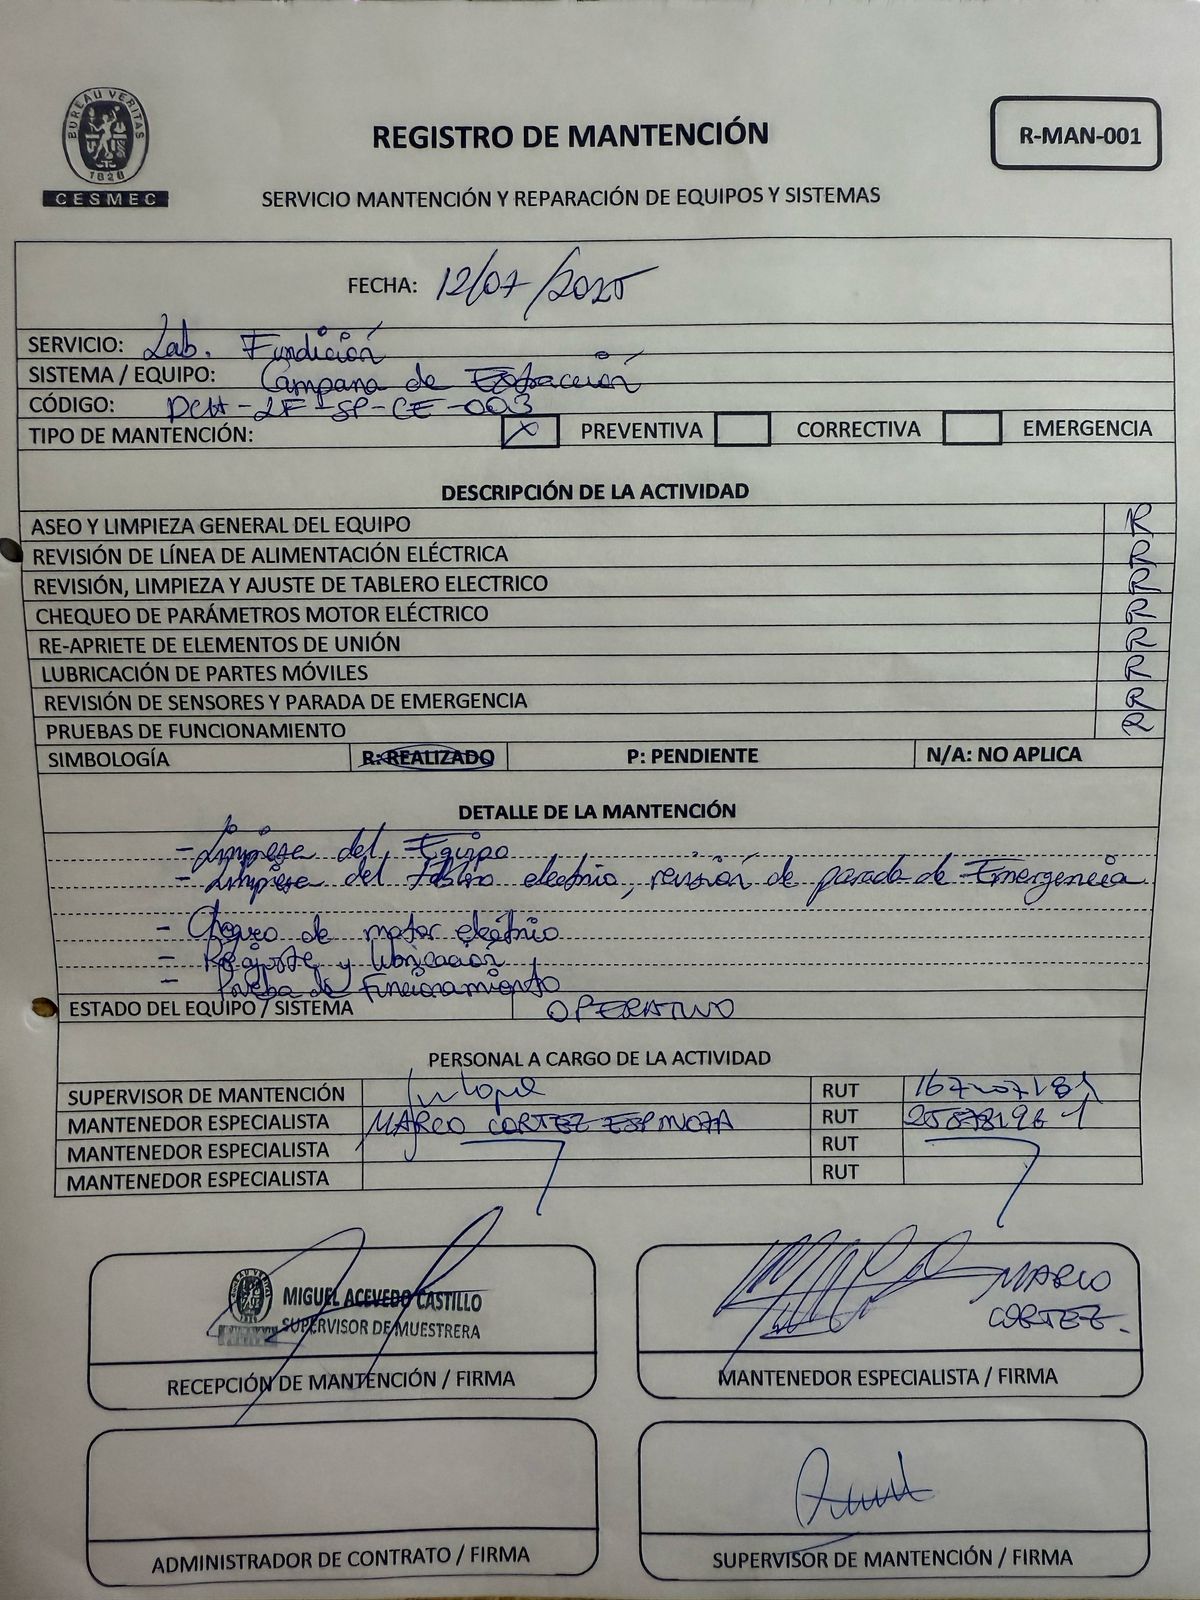 BUREAU VERITAS
1828
CESMEC
REGISTRO DE MANTENCIÓN
R-MAN-001
SERVICIO MANTENCIÓN Y REPARACIÓN DE EQUIPOS Y SISTEMAS
FECHA: 12/07/2025
SERVICIO: Lab. Fundición
SISTEMA / EQUIPO: Campana de Extracción
CÓDIGO: DCH-LF-SP-CE-003
TIPO DE MANTENCIÓN: X PREVENTIVA CORRECTIVA EMERGENCIA
DESCRIPCIÓN DE LA ACTIVIDAD
ASEO Y LIMPIEZA GENERAL DEL EQUIPO R
REVISIÓN DE LÍNEA DE ALIMENTACIÓN ELÉCTRICA R
REVISIÓN, LIMPIEZA Y AJUSTE DE TABLERO ELECTRICO R
CHEQUEO DE PARÁMETROS MOTOR ELÉCTRICO R
RE-APRIETE DE ELEMENTOS DE UNIÓN R
LUBRICACIÓN DE PARTES MÓVILES R
REVISIÓN DE SENSORES Y PARADA DE EMERGENCIA R
PRUEBAS DE FUNCIONAMIENTO R
SIMBOLOGÍA R: REALIZADO P: PENDIENTE N/A: NO APLICA
DETALLE DE LA MANTENCIÓN
- Limpiesa del Equipo
- Limpiesa del tablero electrico, revisión de parada de Emergencia
- Chequeo de motor electrico
- Reajuste y lubricación
- Prueba de Funcionamiento
ESTADO DEL EQUIPO / SISTEMA OPERATIVO
PERSONAL A CARGO DE LA ACTIVIDAD
SUPERVISOR DE MANTENCIÓN RUT
MANTENEDOR ESPECIALISTA MARCO CORTEZ ESPINOZA RUT
MANTENEDOR ESPECIALISTA RUT
MANTENEDOR ESPECIALISTA RUT
MIGUEL ACEVEDO CASTILLO
SUPERVISOR DE MUESTRERA
RECEPCIÓN DE MANTENCIÓN / FIRMA
MARCO
CORTEZ.
MANTENEDOR ESPECIALISTA / FIRMA
ADMINISTRADOR DE CONTRATO / FIRMA
SUPERVISOR DE MANTENCIÓN / FIRMA